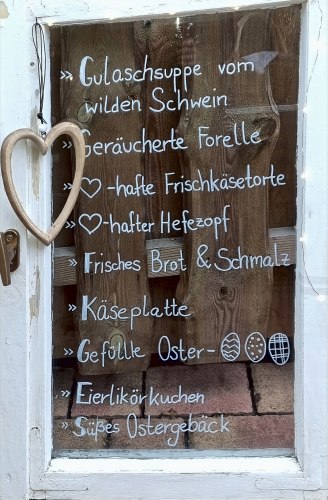 » Gulaschsuppe vom
wilden Schwein
» Geräucherte Forelle
» ♡-hafte Frischkäsetorte
» ♡-hafter Hefezopf
» Frisches Brot & Schmalz
» Käseplatte
» Gefülle Oster-
» Eierlikörkuchen
» Süßes Ostergebäck